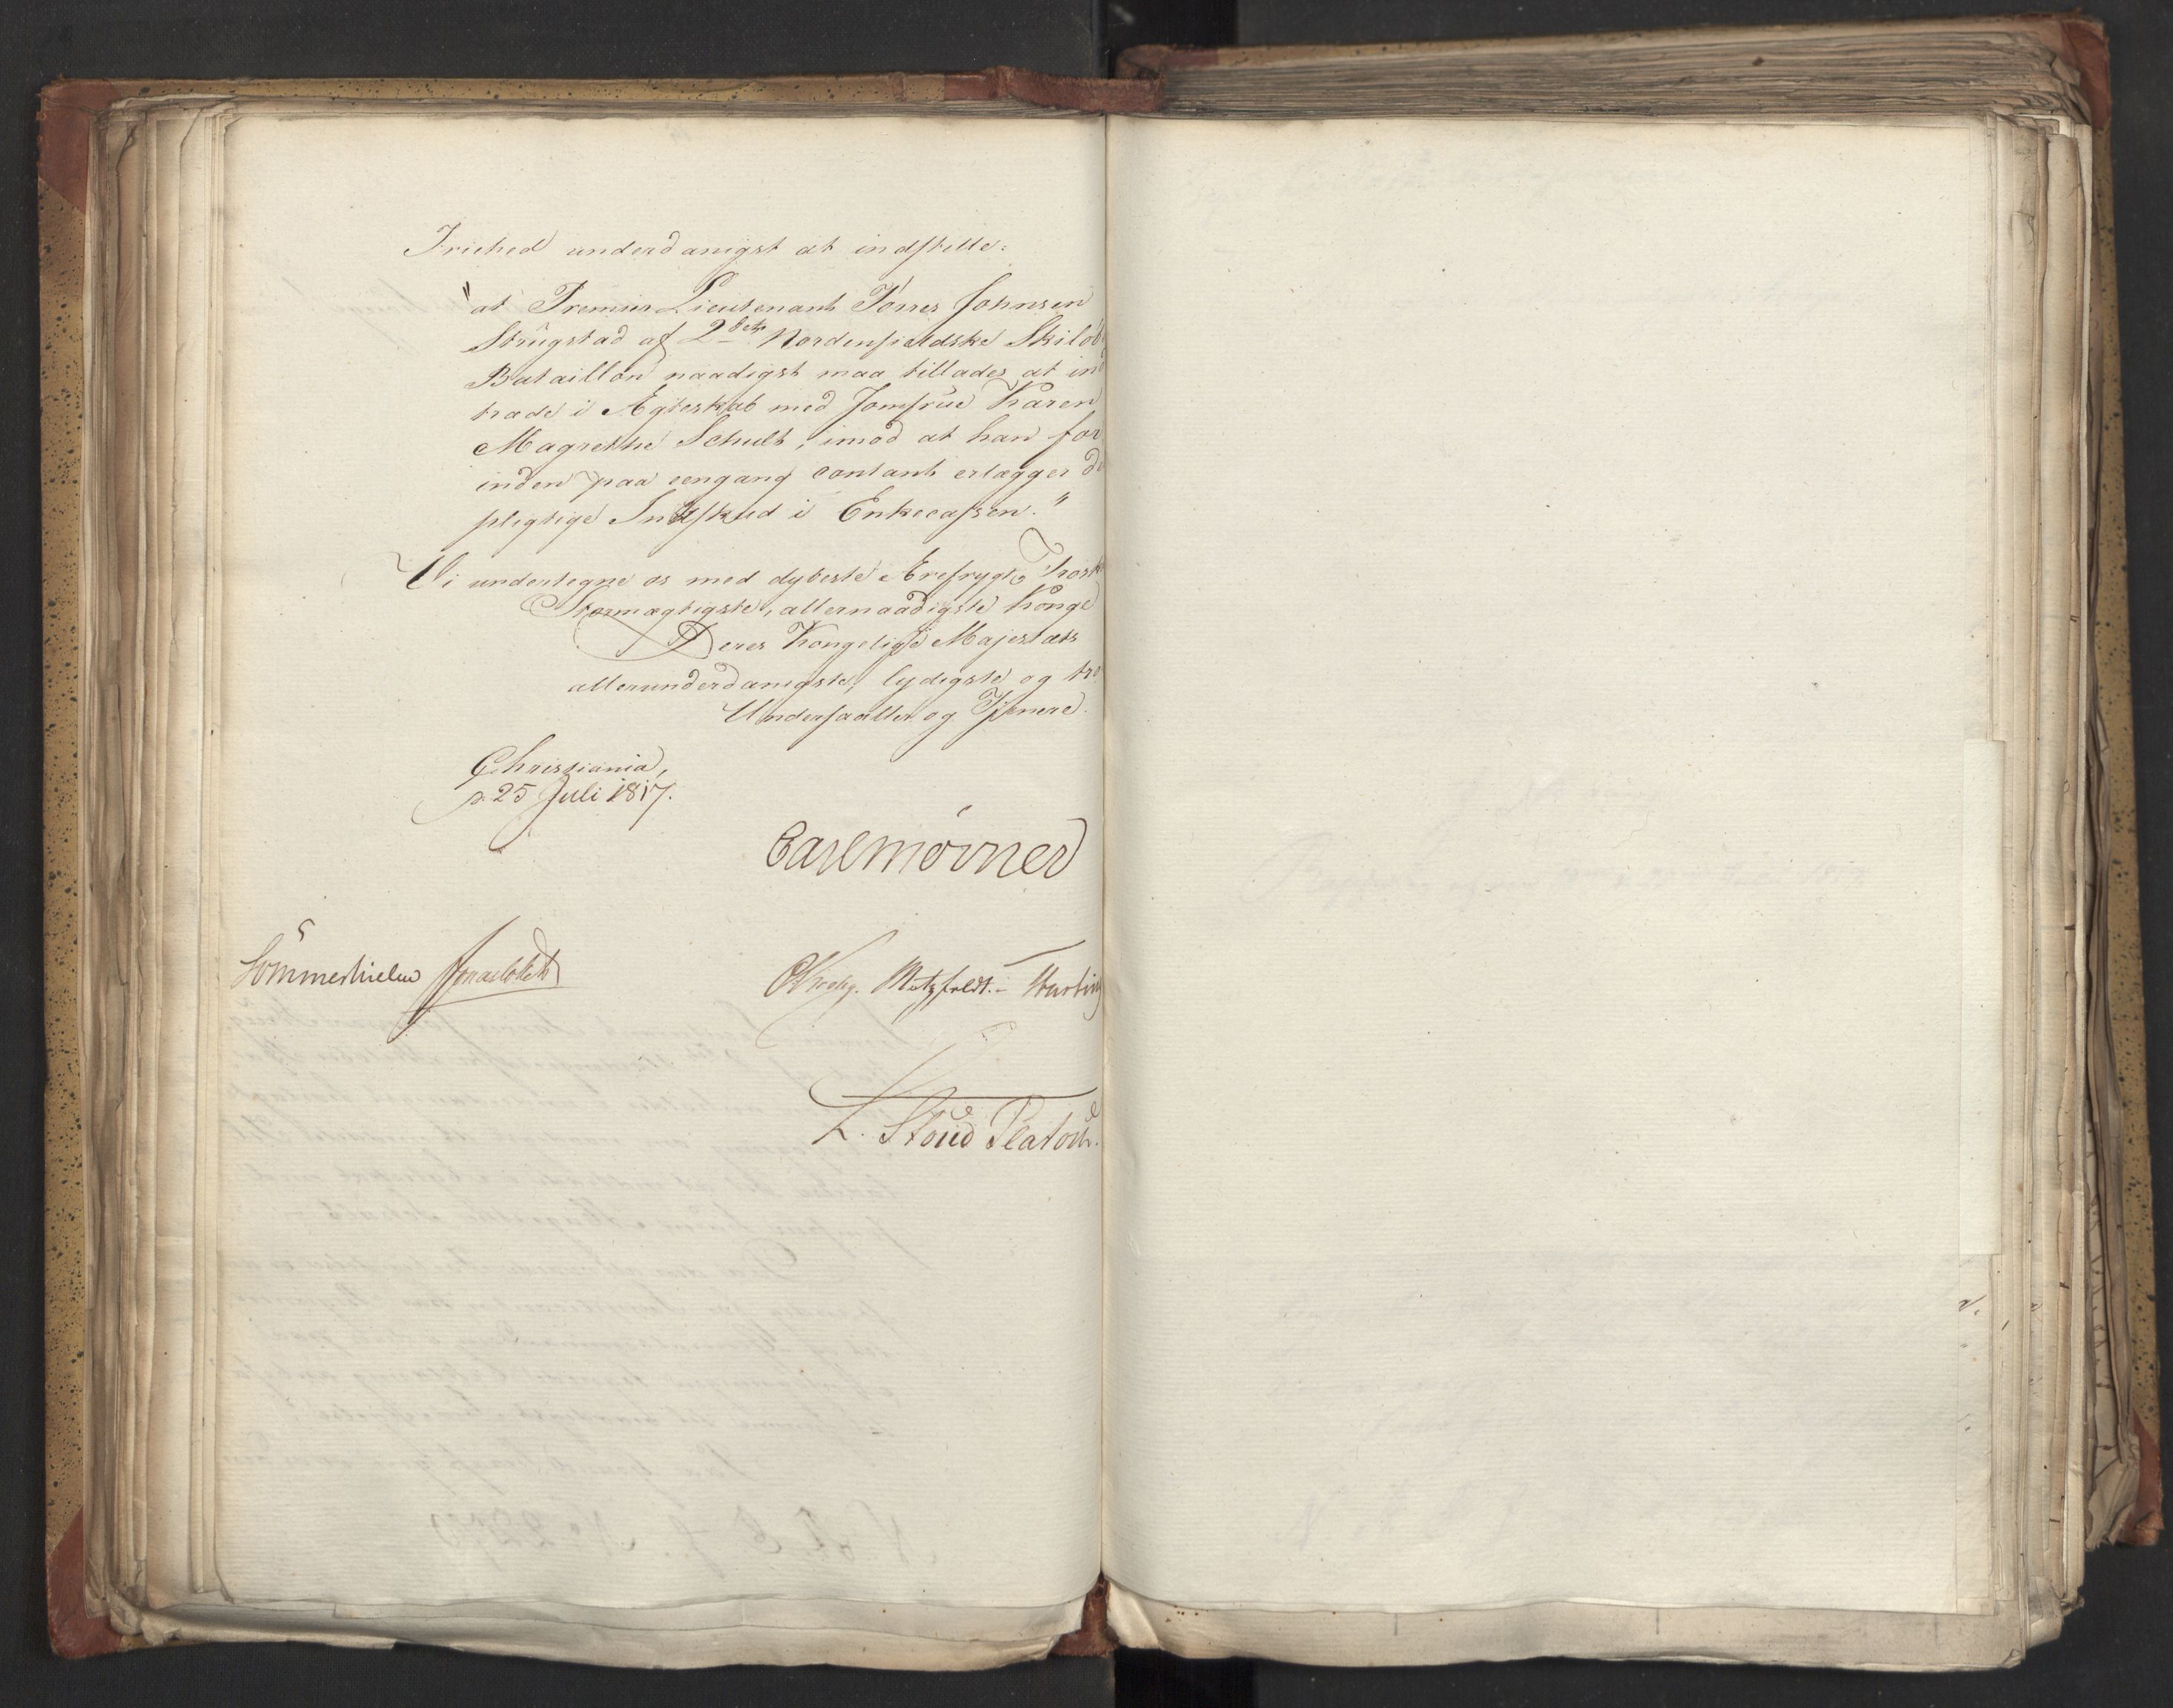 Friehed underdanigst at indstille:
"at Premier Lieutenant Torres Johnsen
Strugstad af 2det Nordenfieldske Skilöb
Bataillon naadigst maa tillades at ind
træde i Ægteskab med Jomfrue Karen
Magrethe Schult, imod at han for
inden paa eengang contant erlægger de
pligtige Indskud i Enkecassen."
Vi undertegne os med dybeste Ærefrygt,
Stormægtigste, allernaadigste Konge
Deres Kongelige Majestæts
allerunderdanigste, lydigste og tro
Undersaatter og Tjenere.
Christiania,
d. 25 Juli 1817.
Carl Mörner
Sommerhielm Jonas Collett
Krohg. Motzfeldt. Hartvig
L. Stoud Platou.